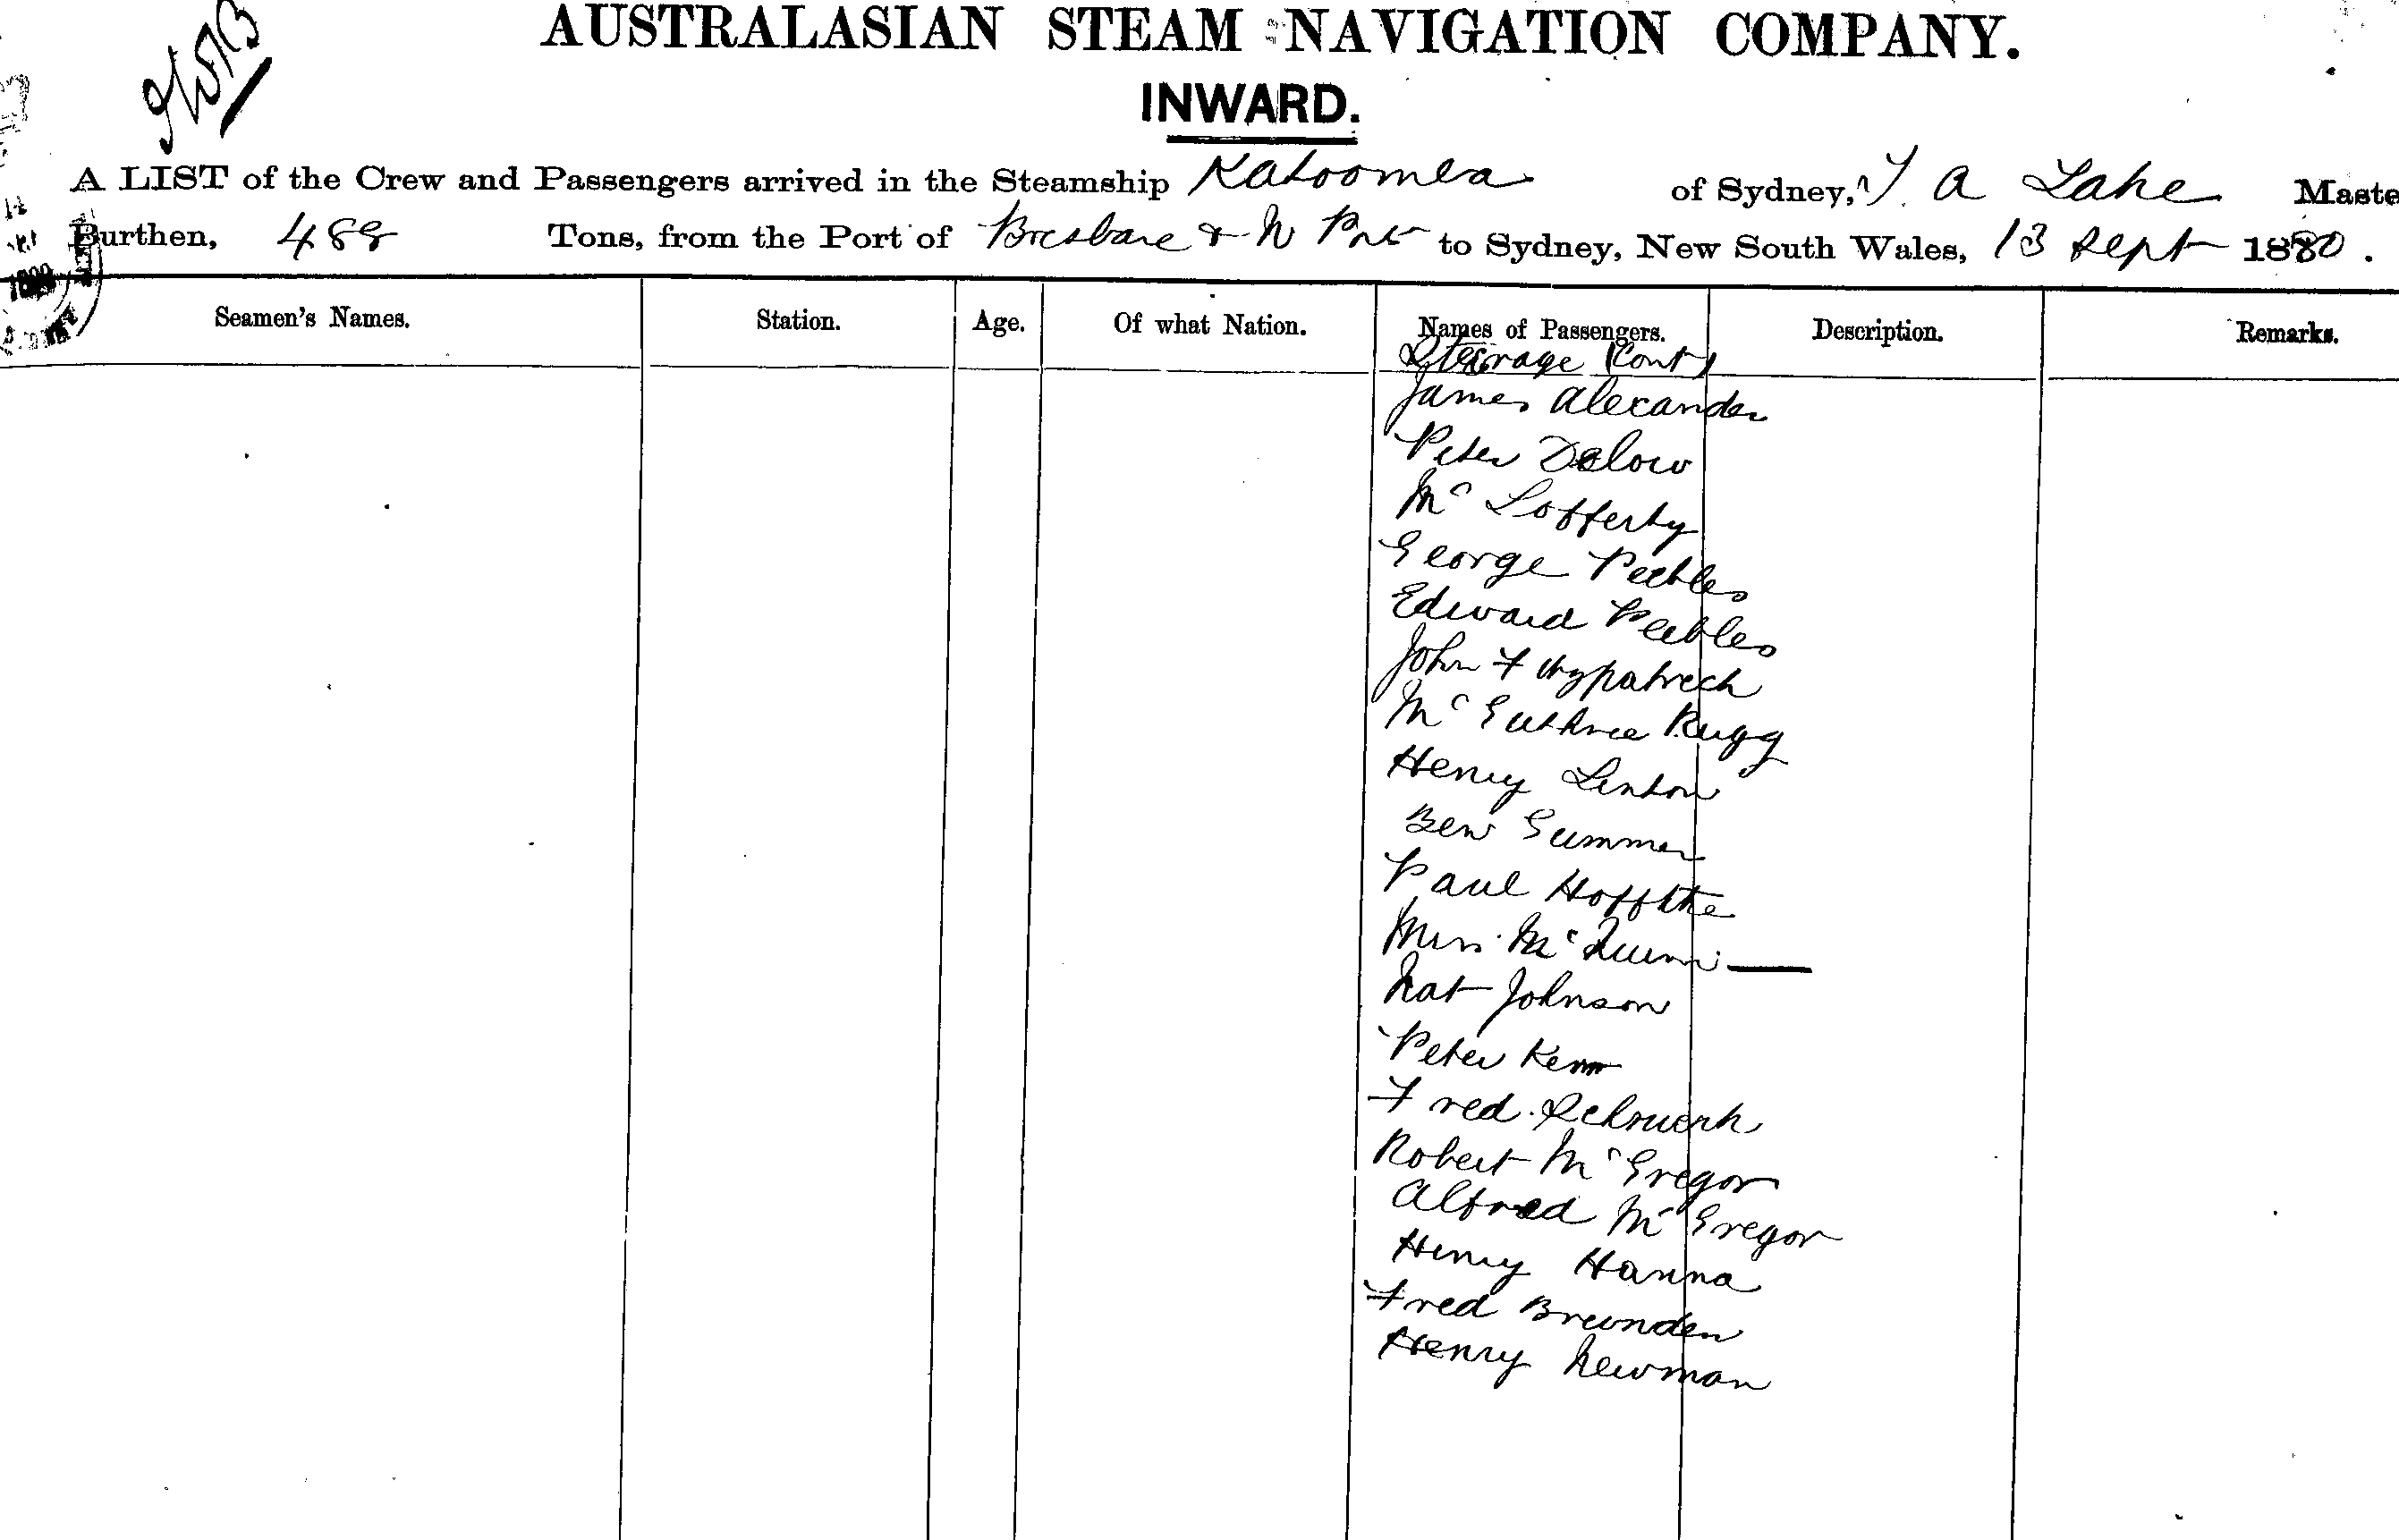 AUSTRALASIAN STEAM NAVIGATION COMPANY.
INWARD.
A LIST of the Crew and Passengers arrived in the Steamship Katoomba of Sydney, T. A Lake Maste
Burthen, 488 Tons, from the Port of Brisbane & N Ports to Sydney, New South Wales, 13 Sept 1880.
Seamen's Names. Station. Age. Of what Nation. Names of Passengers. Description. Remarks.
Steerage (Cont)
James Alexander
Peter Delow
Mc Lofferty
George Peebles
Edward Peebles
John Fitzpatrick
Mc Guthrie Rugg
Henry Linton
Ben Summer
Paul
Mrs. McQuinn
Nat Johnson
Peter Kerr
Fred.
Robert McGregor
Alfred McGregor
Henry Hanna
Fred Brunden
Henry Newman